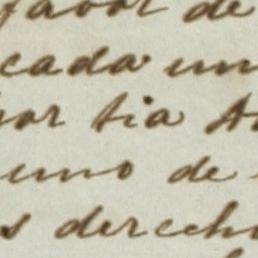 favor de
cada un
por tia A
uno de
s derech